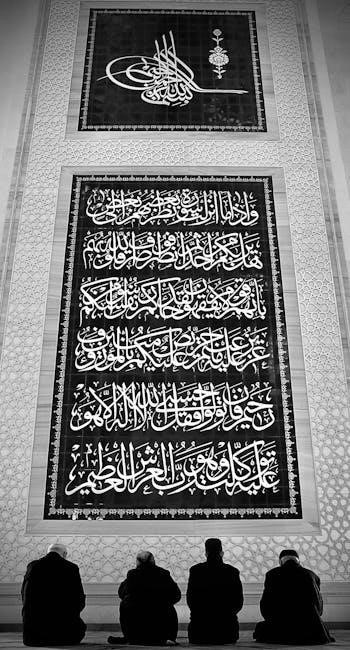 وإذا ما أنزلت سورة نظر بعضهم إلى بعض
هل يراكم من أحد ثم انصرفوا صرف الله قلوبهم
بأنهم قوم لا يفقهون لقد جاءكم رسول من أنفسكم
عزيز عليه ما عنتم حريص عليكم بالمؤمنين رؤوف
رحيم فإن تولوا فقل حسبي الله لا إله إلا هو
عليه توكلت وهو رب العرش العظيم